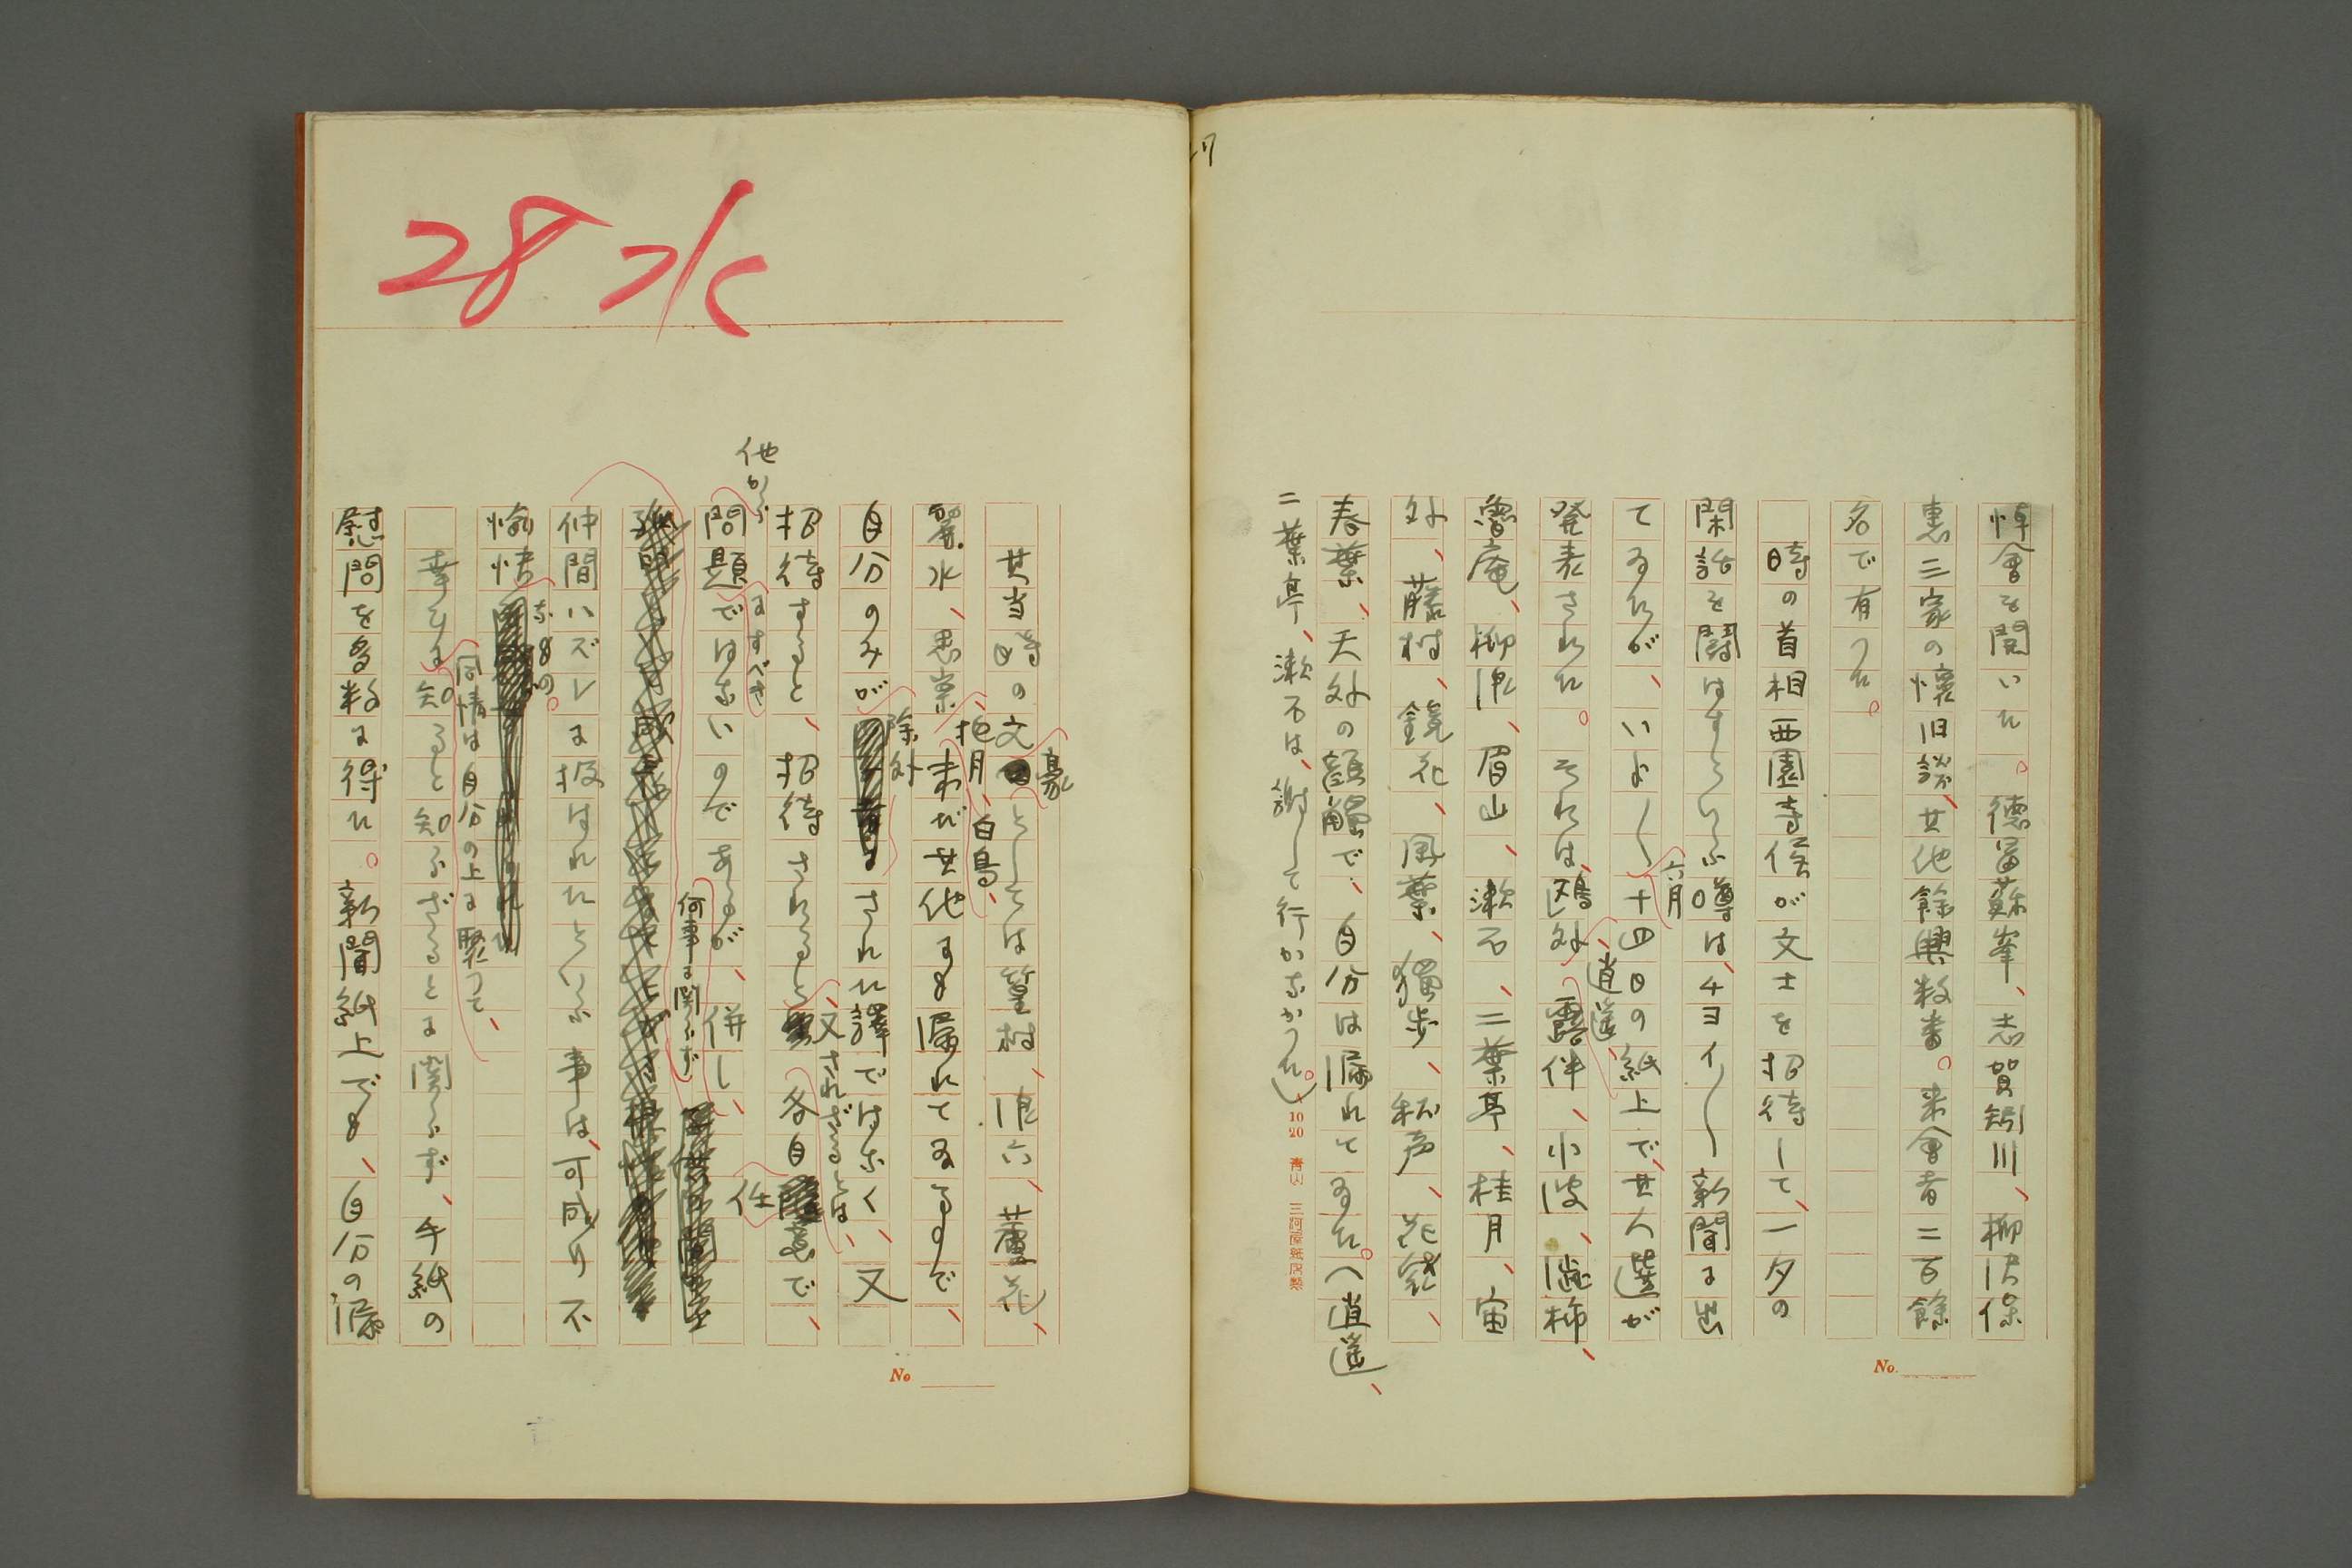 27
悼會を開いた。德冨蘇峯、志賀矧川、柳沢保
惠三家の懐旧談、其他餘興数番。来會者二百餘
名で有つた。
時の首相西園寺侯が文士を招待して、一夕の
閑話を闘はすといふ噂は、チヨイ〳〵新聞に出
てゐたが、いよ〳〵六月十四日の紙上で、其人選が
発表された。それは、鴎外、逍遥、露伴、小波、風柳、
魯庵、柳浪、眉山、漱石、二葉亭、桂月、宙
外、藤村、鏡花、風葉、獨歩、秋声、花袋、
春葉、天外の顔觸で、自分は漏れてゐた。(逍遥、
二葉亭、漱石は、謝して行かなかつた。)
10 20 青山 三河屋紙店製
No.
28 水
其当時の文豪としては篁村、浪六、蘆花、
麗水、思案、抱月、白鳥、未だ其他にも漏れてゐるので、
自分のみが除外された譯ではなく、又
招待すると、招待されると、又されざるとは、各自任意で、
他から問題にすべきではないのであるが、併し、何事に関らず
仲間ハズレに扱はれたといふ事は、可成り不
愉快なもの。
幸ひに同情は自分の上に聚つて、知ると知らざるとに関らず、手紙の
慰問を多数に得た。新聞紙上でも、自分の漏
No